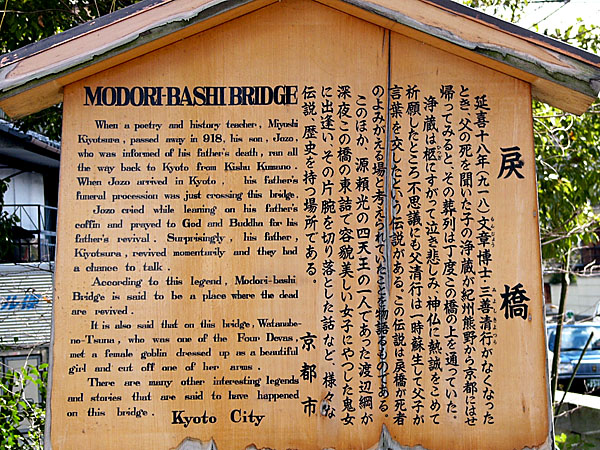 MODORI-BASHI BRIDGE
When a poetry and history teacher, Miyoshi
Kiyotsura, passed away in 918, his son, Jozo,
who was informed of his father's death, run all
the way back to Kyoto from Kishu Kumano.
When Jozo arrived in Kyoto, his father's
funeral procession was just crossing this bridge.
Jozo cried while leaning on his father's
coffin and prayed to God and Buddha for his
father's revival. Surprisingly, his father,
Kiyotsura, revived momentarily and they had
a chance to talk.
According to this legend, Modori-bashi
Bridge is said to be a place where the dead
are revived.
It is also said that on this bridge, Watanabe-
no-Tsuna, who was one of the Four Devas,
met a female goblin dressed up as a beautiful
girl and cut off one of her arms.
There are many other interesting legends
and stories that are said to have happened
on this bridge.
Kyoto City
戻橋
延喜十八年(九一八)文章博士・三善清行がなくなった
とき、父の死を聞いた子の浄蔵が紀州熊野から京都にはせ
帰ってみると、その葬列は丁度この橋の上を通っていた。
浄蔵は柩にすがって泣き悲しみ、神仏に熱誠をこめて
祈願したところ不思議にも父清行は一時蘇生して父子が
言葉を交したという伝説がある。この伝説は戻橋が死者
のよみがえる場と考えられていたことを物語るものである。
このほか、源頼光の四天王の一人であった渡辺綱が
深夜この橋の東詰で容貌美しい女子にやつした鬼女
に出逢い、その片腕を切り落とした話など、様々な
伝説、歴史を持つ場所である。
京都市